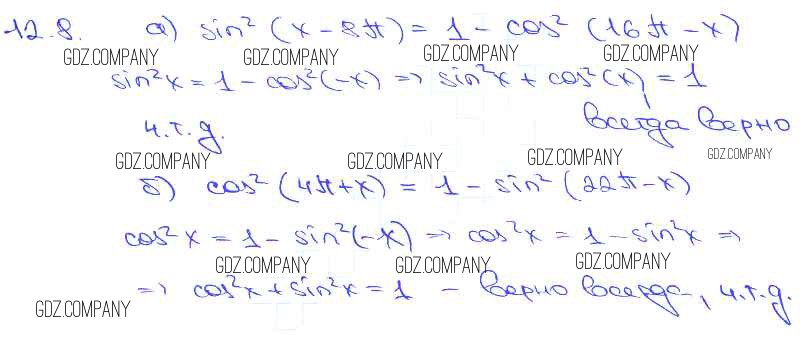 12.8. а) sin²(x-8π) = 1 - cos²(16π-x)
GDZ.COMPANY GDZ.COMPANY GDZ.COMPANY GDZ.COMPANY
sin²x = 1 - cos²(-x) => sin²x + cos²(x) = 1
всегда верно
ч.т.д.
GDZ.COMPANY GDZ.COMPANY GDZ.COMPANY GDZ.COMPANY
б) cos²(4π+x) = 1 - sin²(22π-x)
cos²x = 1 - sin²(-x) => cos²x = 1 - sin²x =>
GDZ.COMPANY GDZ.COMPANY GDZ.COMPANY
=> cos²x + sin²x = 1 - верно всегда, ч.т.д.
GDZ.COMPANY